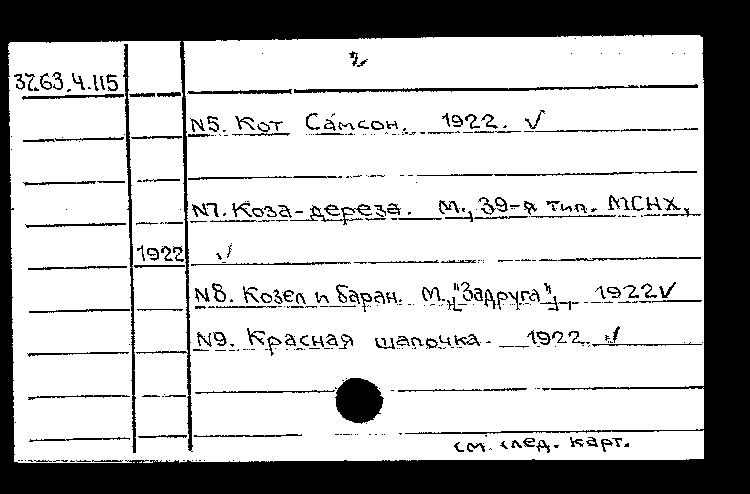 2
37.63.4.115
N5. Кот Самсон. 1922. √
N7. Коза-дереза. М., 39-я тип. МСНХ,
1922 √
N8. Козел и баран. М., ["Задруга"], 1922 √
N9. Красная шапочка. 1922. √
см. след. карт.